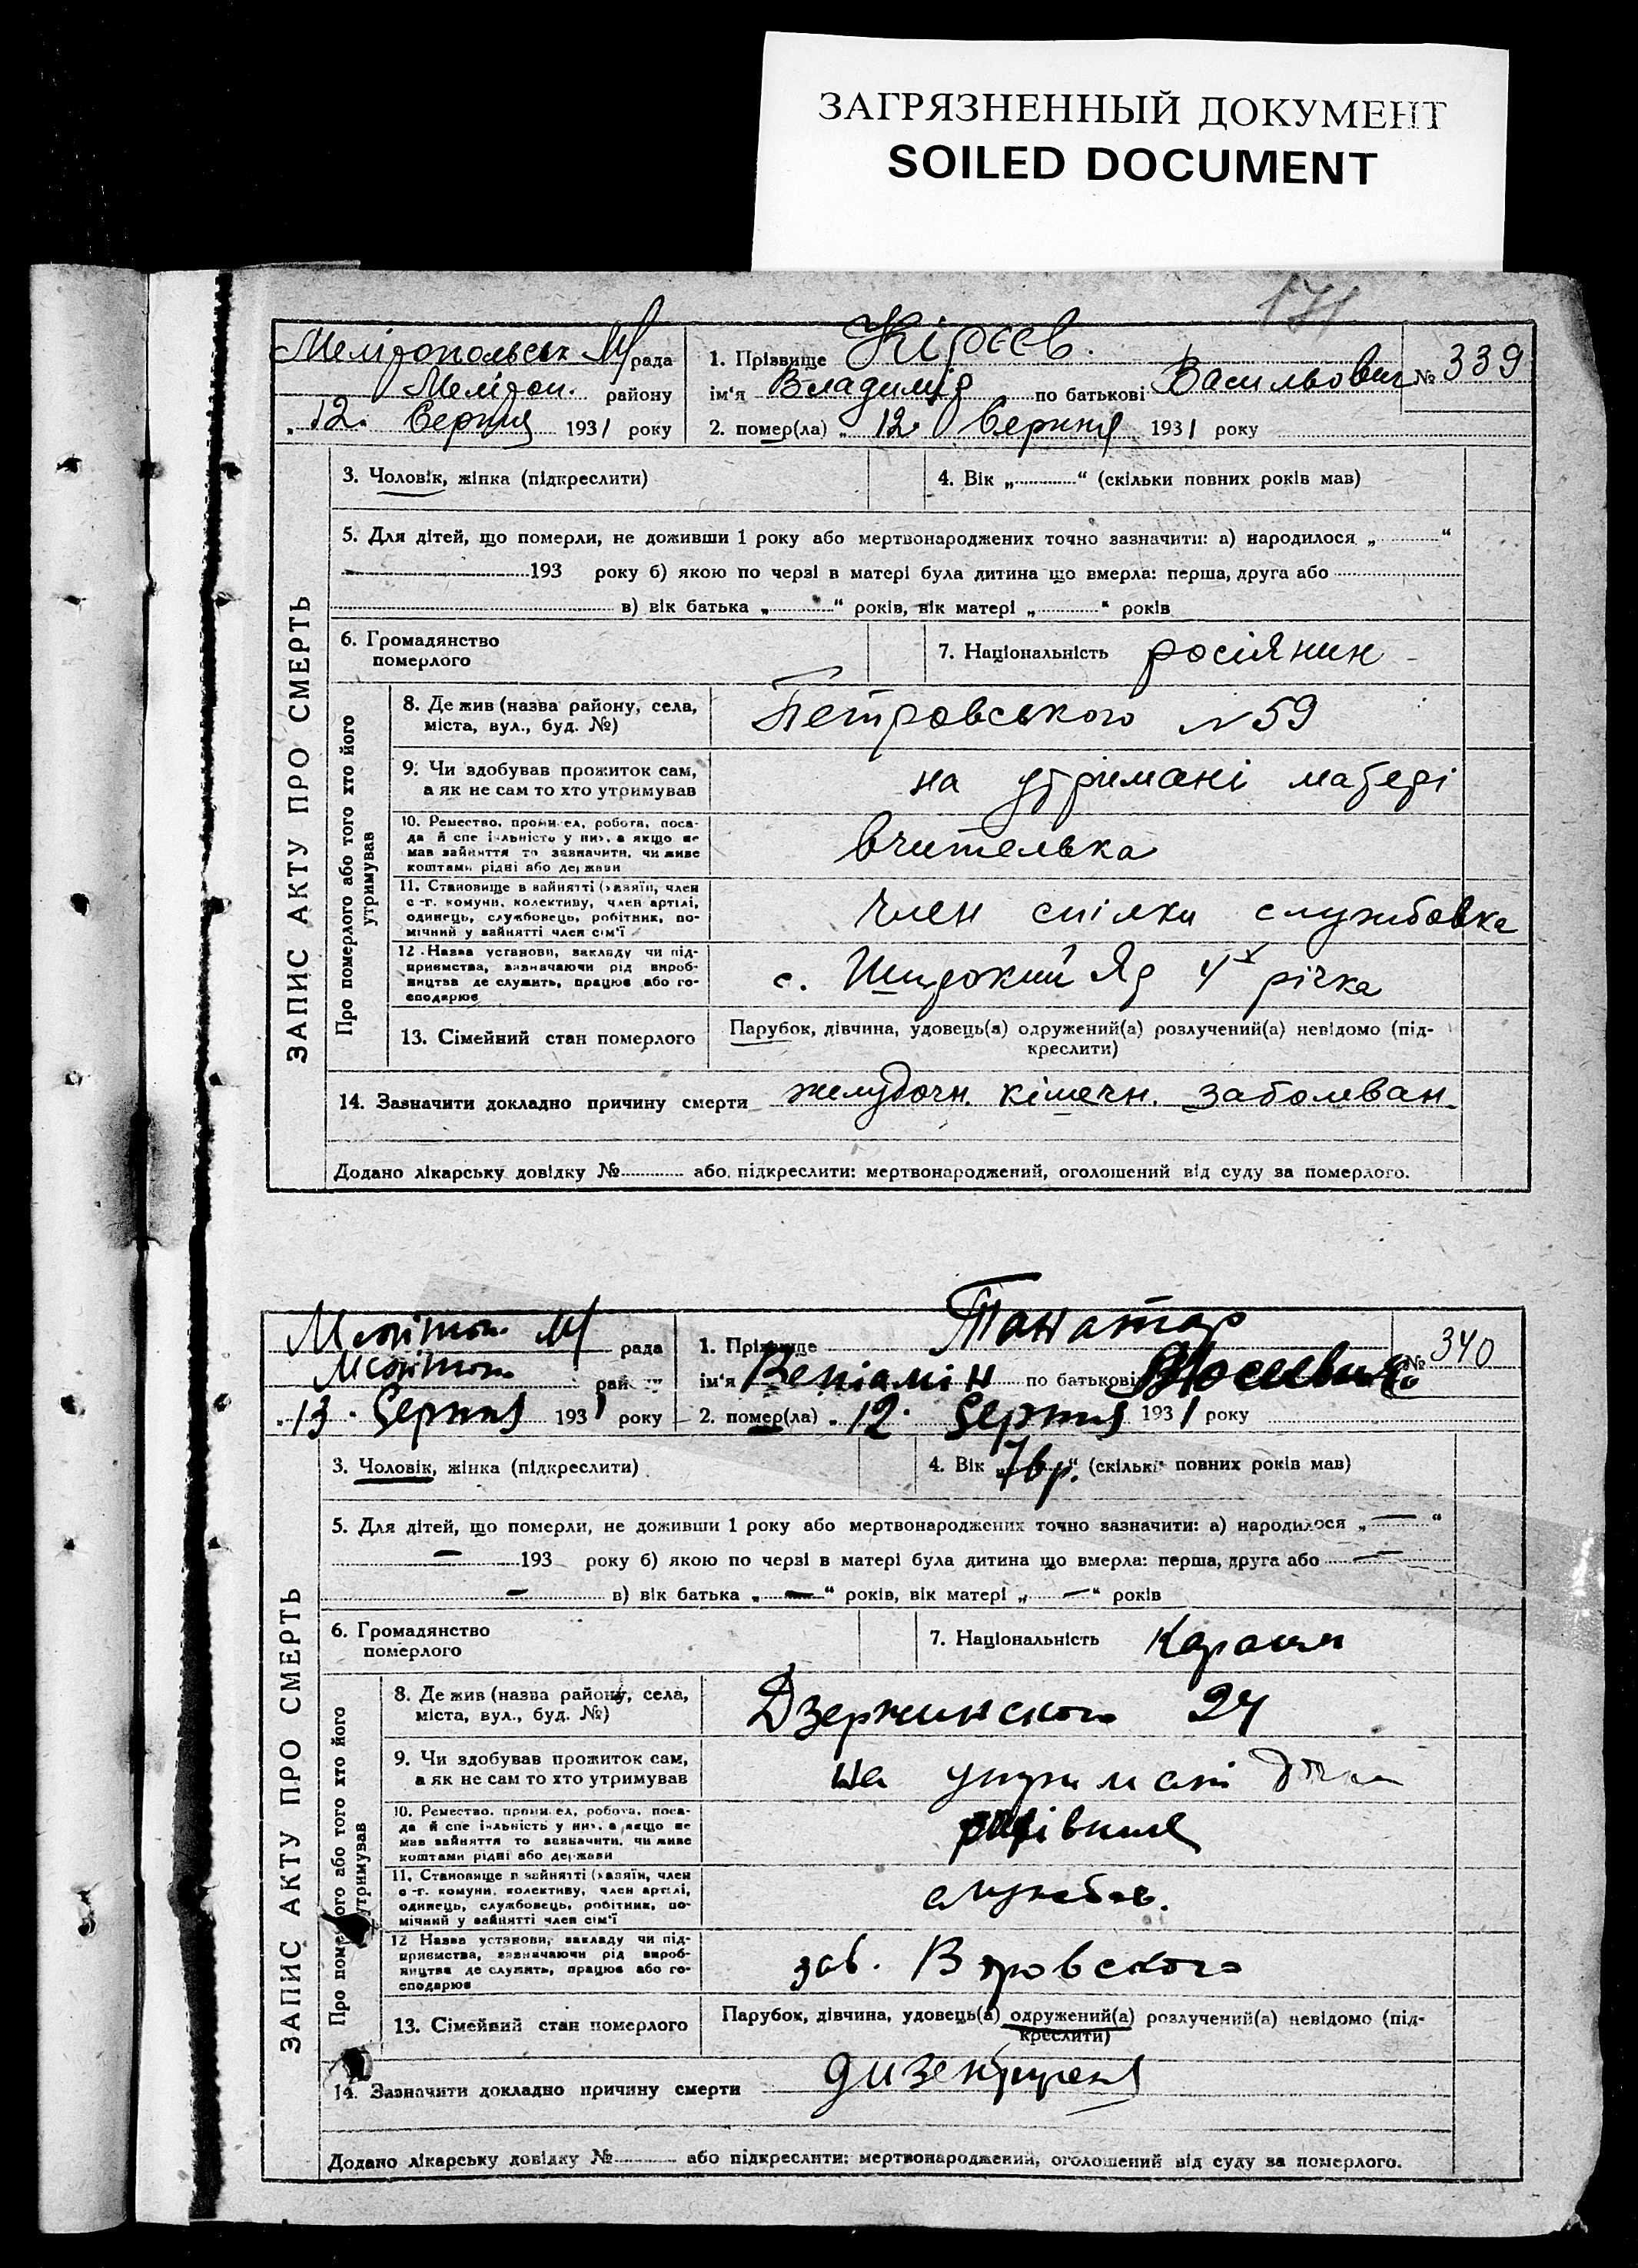 ЗАГРЯЗНЕННЫЙ ДОКУМЕНТ
SOILED DOCUMENT
171
Мелітопольськ М рада
Мелітоп. району
„12. Серпня 1931 року
1. Прізвище Кірєєв.
ім'я Владимір по батькові Васильович № 339
2. помер(ла) „12. Серпня 1931 року
ЗАПИС АКТУ ПРО СМЕРТЬ
3. Чоловік, жінка (підкреслити)
4. Вік „ “ (скільки повних років мав)
5. Для дітей, що померли, не доживши 1 року або мертвонароджених точно зазначити: а) народилося „ “
193 року б) якою по черзі в матері була дитина що вмерла: перша, друга або
в) вік батька „ “ років, вік матері „ “ років
6. Громадянство
померлого
7. Національність росіянин
Про померлого або того хто його
утримував
8. Де жив (назва району, села,
міста, вул., буд. №)
Петровського № 59
9. Чи здобував прожиток сам,
а як не сам то хто утримував
на утримані матері
10. Ремество, промисел, робота, поса-
да й спеціальність у них, а якщо не
мав зайняття то зазначити, чи живе
коштами рідні або держави
вчителька
11. Становище в зайнятті (хазяїн, член
с.-г. комуни, колективу, член артілі,
одинець, службовець, робітник, по-
мічний у зайнятті член сім'ї
член спілки службовка
12. Назва установи, закладу чи під-
приємства, зазначаючи рід вироб-
ництва де служить, працює або го-
сподарює
с. Широкий Яр 4х річка
13. Сімейний стан померлого
Парубок, дівчина, удовець(а) одружений(а) розлучений(а) невідомо (під-
креслити)
14. Зазначити докладно причину смерти желудочн. кішечн. заболеван
Додано лікарську довідку № або підкреслити: мертвонароджений, оголошений від суду за померлого.
Мелітоп. М рада
Мелітоп району
„13. Серпня 1931 року
1. Прізвище Танатар
ім'я Веніамін по батькові № 340
2. помер(ла) „12. Серпня 1931 року
ЗАПИС АКТУ ПРО СМЕРТЬ
3. Чоловік, жінка (підкреслити)
4. Вік „ “ (скільки повних років мав)
5. Для дітей, що померли, не доживши 1 року або мертвонароджених точно зазначити: а) народилося „ — “
— 193 року б) якою по черзі в матері була дитина що вмерла: перша, друга або —
— в) вік батька „ — “ років, вік матері „ — “ років
6. Громадянство
померлого
7. Національність Караим
Про померлого або того хто його
утримував
8. Де жив (назва району, села,
міста, вул., буд. №)
Дзержинского 24
9. Чи здобував прожиток сам,
а як не сам то хто утримував
на утримані
10. Ремество, промисел, робота, поса-
да й спеціальність у них, а якщо не
мав зайняття то зазначити, чи живе
коштами рідні або держави
11. Становище в зайнятті (хазяїн, член
с.-г. комуни, колективу, член артілі,
одинець, службовець, робітник, по-
мічний у зайнятті член сім'ї
службов.
12 Назва установи, закладу чи під-
приємства, зазначаючи рід вироб-
ництва де служить, працює або го-
сподарює
зав. Воровского
13. Сімейний стан померлого
Парубок, дівчина, удовець(а) одружений(а) розлучений(а) невідомо (під-
креслити)
14. Зазначити докладно причину смерти дизентерея
Додано лікарську довідку № або підкреслити: мертвонароджений, оголошений від суду за померлого.